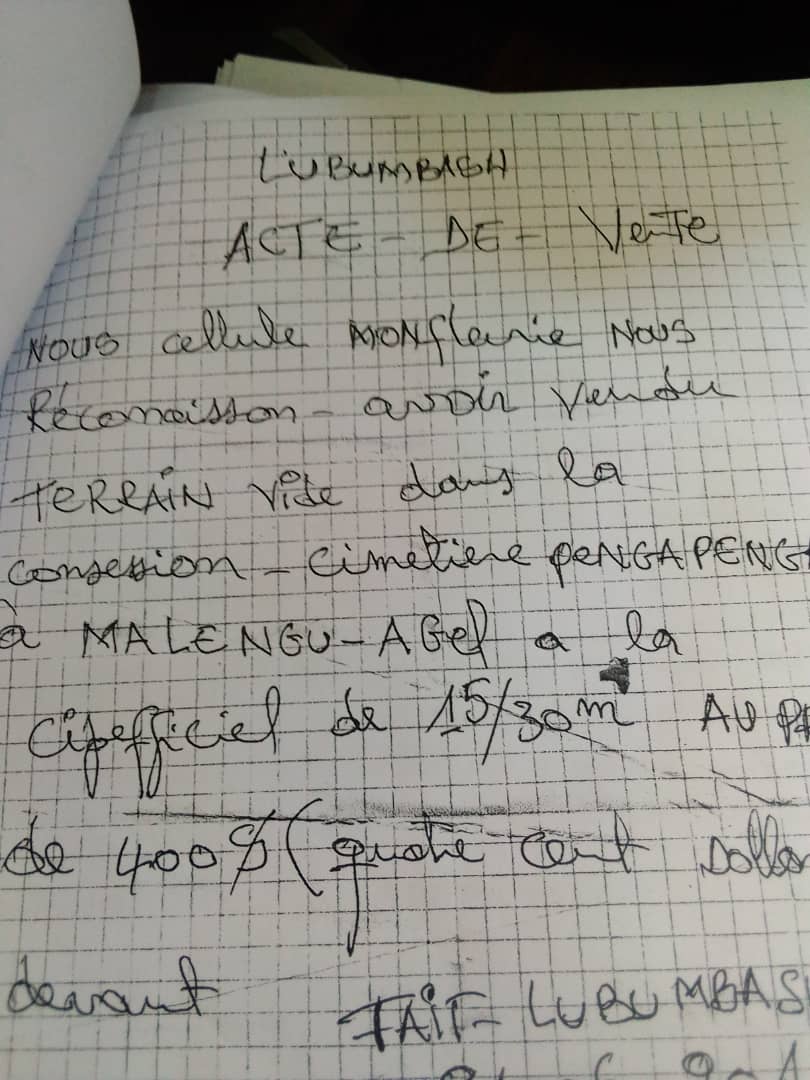 LUBUMBASH
ACTE - DE - Vente
NOUS cellule MONfleurie NOUS
Réconnaisson - avoir Vendu
TERRAIN Vide dans la
Consession - Cimetiere PENGAPENG
à MALENGU - AGEf a la
Cipefficiel de 15/30m AU
de 400$ ( quatre cent Dollar
devant
FAIT - LUBUMBAS